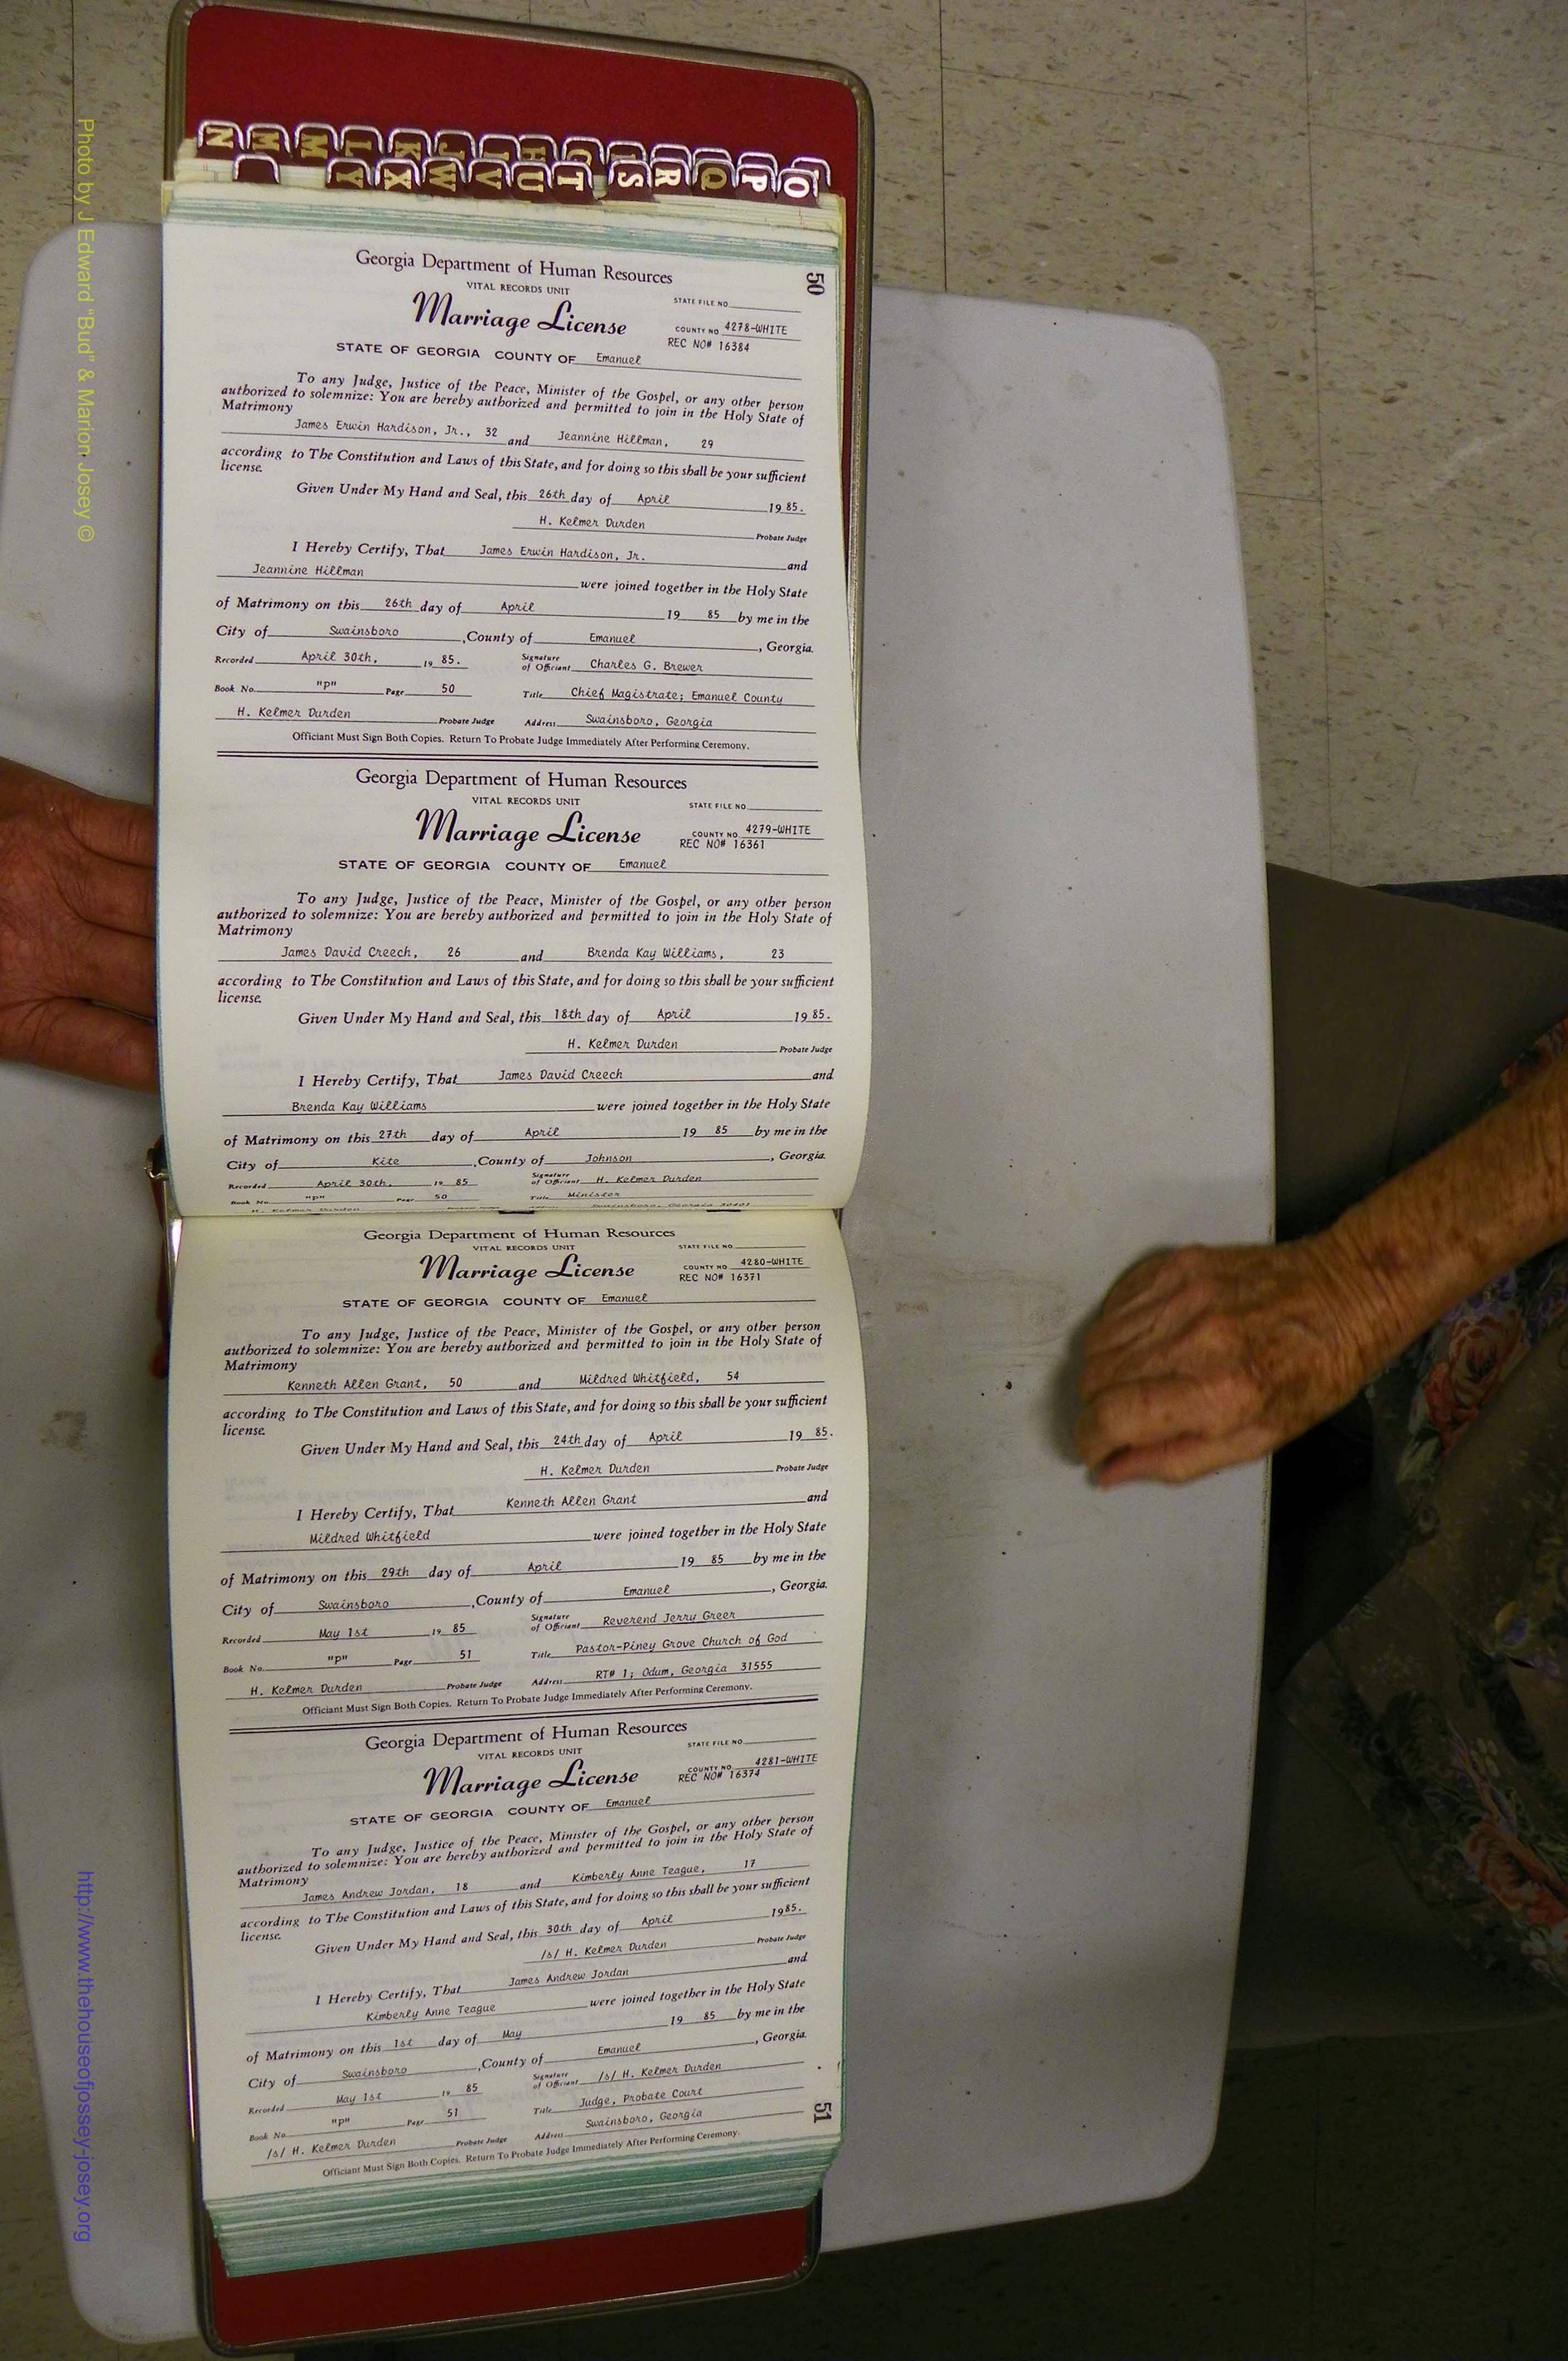 Photo by J Edward "Bud" & Marion Josey ©
http://www.thehouseofjossey-josey.org
N M M L K J I H G R Q P O
Y X W V U T S
50
Georgia Department of Human Resources
VITAL RECORDS UNIT
STATE FILE NO.
Marriage License
COUNTY NO. 4278-WHITE
REC NO# 16384
STATE OF GEORGIA COUNTY OF Emanuel
To any Judge, Justice of the Peace, Minister of the Gospel, or any other person
authorized to solemnize: You are hereby authorized and permitted to join in the Holy State of
Matrimony
James Erwin Hardison, Jr., 32 and Jeannine Hillman, 29
according to The Constitution and Laws of this State, and for doing so this shall be your sufficient
license.
Given Under My Hand and Seal, this 26th day of April 1985.
H. Kelmer Durden
Probate Judge
I Hereby Certify, That James Erwin Hardison, Jr. and
Jeannine Hillman were joined together in the Holy State
of Matrimony on this 26th day of April 19 85 by me in the
City of Swainsboro, County of Emanuel, Georgia.
Recorded April 30th, 19 85. Signature of Officiant Charles G. Brewer
Book No. "p" Page 50 Title Chief Magistrate; Emanuel County
H. Kelmer Durden Probate Judge Address Swainsboro, Georgia
Officiant Must Sign Both Copies. Return To Probate Judge Immediately After Performing Ceremony.
Georgia Department of Human Resources
VITAL RECORDS UNIT
STATE FILE NO.
Marriage License
COUNTY NO. 4279-WHITE
REC NO# 16361
STATE OF GEORGIA COUNTY OF Emanuel
To any Judge, Justice of the Peace, Minister of the Gospel, or any other person
authorized to solemnize: You are hereby authorized and permitted to join in the Holy State of
Matrimony
James David Creech, 26 and Brenda Kay Williams, 23
according to The Constitution and Laws of this State, and for doing so this shall be your sufficient
license.
Given Under My Hand and Seal, this 18th day of April 1985.
H. Kelmer Durden
Probate Judge
I Hereby Certify, That James David Creech and
Brenda Kay Williams were joined together in the Holy State
of Matrimony on this 27th day of April 19 85 by me in the
City of Kite, County of Johnson, Georgia.
Recorded April 30th, 19 85 Signature of Officiant H. Kelmer Durden
Book No. "p" Page 50 Title Minister
H. Kelmer Durden Swainsboro, Georgia 30401
Georgia Department of Human Resources
VITAL RECORDS UNIT
STATE FILE NO.
Marriage License
COUNTY NO. 4280-WHITE
REC NO# 16371
STATE OF GEORGIA COUNTY OF Emanuel
To any Judge, Justice of the Peace, Minister of the Gospel, or any other person
authorized to solemnize: You are hereby authorized and permitted to join in the Holy State of
Matrimony
Kenneth Allen Grant, 50 and Mildred Whitfield, 54
according to The Constitution and Laws of this State, and for doing so this shall be your sufficient
license.
Given Under My Hand and Seal, this 24th day of April 19 85.
H. Kelmer Durden
Probate Judge
I Hereby Certify, That Kenneth Allen Grant and
Mildred Whitfield were joined together in the Holy State
of Matrimony on this 29th day of April 19 85 by me in the
City of Swainsboro, County of Emanuel, Georgia.
Recorded May 1st 19 85 Signature of Officiant Reverend Jerry Greer
Book No. "p" Page 51 Title Pastor-Piney Grove Church of God
H. Kelmer Durden Probate Judge Address RT# 1; Odum, Georgia 31555
Officiant Must Sign Both Copies. Return To Probate Judge Immediately After Performing Ceremony.
Georgia Department of Human Resources
VITAL RECORDS UNIT
STATE FILE NO.
Marriage License
COUNTY NO. 4281-WHITE
REC NO# 16374
STATE OF GEORGIA COUNTY OF Emanuel
To any Judge, Justice of the Peace, Minister of the Gospel, or any other person
authorized to solemnize: You are hereby authorized and permitted to join in the Holy State of
Matrimony
James Andrew Jordan, 18 and Kimberly Anne Teague, 17
according to The Constitution and Laws of this State, and for doing so this shall be your sufficient
license.
Given Under My Hand and Seal, this 30th day of April 1985.
/s/ H. Kelmer Durden
Probate Judge
I Hereby Certify, That James Andrew Jordan and
Kimberly Anne Teague were joined together in the Holy State
of Matrimony on this 1st day of May 19 85 by me in the
City of Swainsboro, County of Emanuel, Georgia.
Recorded May 1st 19 85 Signature of Officiant /s/ H. Kelmer Durden
Book No. "p" Page 51 Title Judge, Probate Court
/s/ H. Kelmer Durden Probate Judge Address Swainsboro, Georgia
Officiant Must Sign Both Copies. Return To Probate Judge Immediately After Performing Ceremony.
51